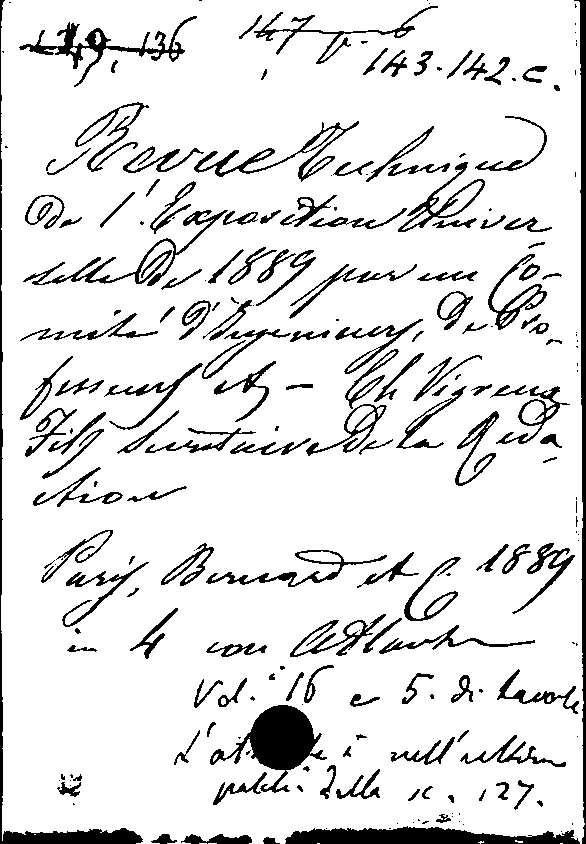 149. 136 147 p. 6
143.142.c.
Revue Technique
De l'Exposition Univer
selle De 1889 par un Co-
mité d'Ingenieurs, De Pro-
fesseurs etc — Ch Vigreux
Fils Secretaire De la Reda-
ction
Paris, Bernard et C. 1889
in 4 con Atlante
Vol.i 16 e 5. di tavole
L'at te è nell'ultimo
palch. della sc. 127.